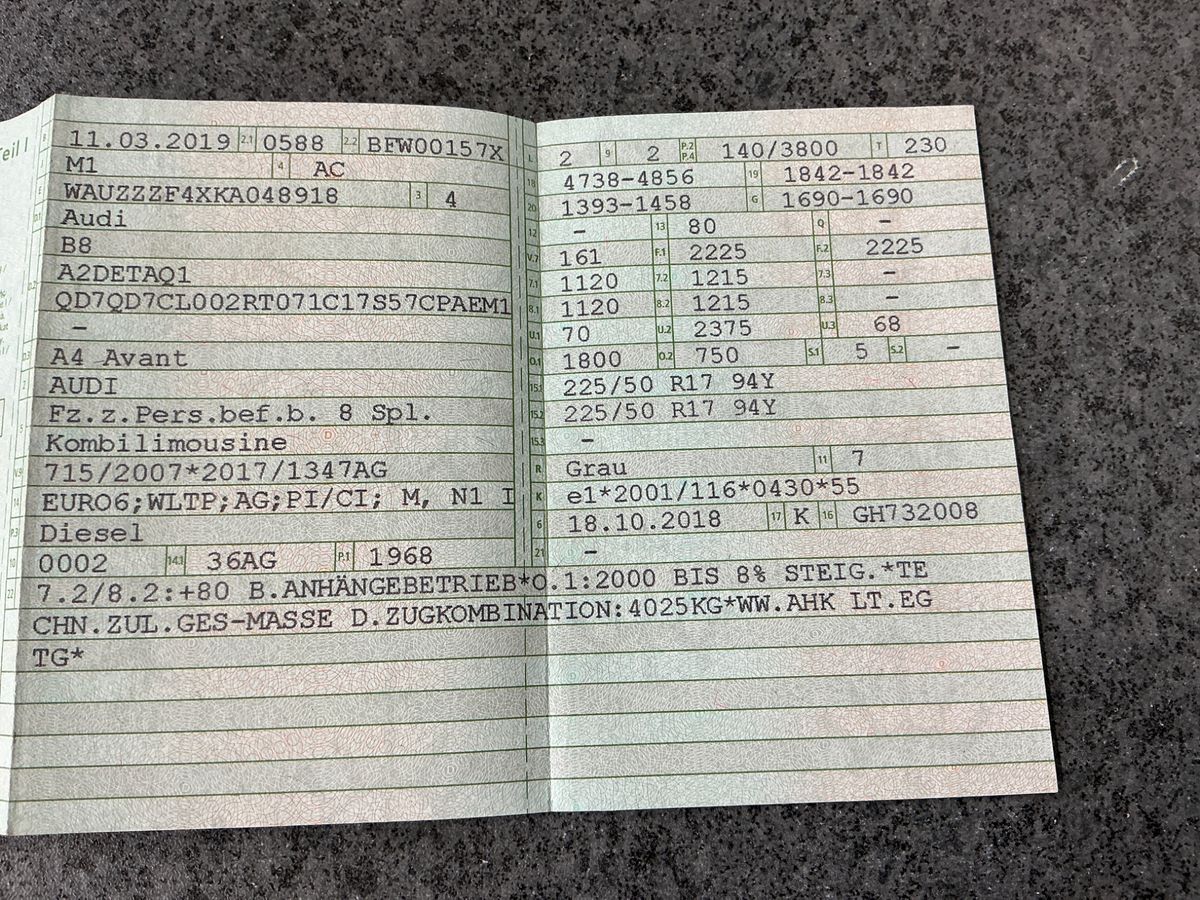 Teil I
B 11.03.2019 2.1 0588 2.2 BFW00157X
M1 4 AC
E WAUZZZF4XKA048918 3 4
D.1 Audi
B8
D.2 A2DETAQ1
QD7QD7CL002RT071C17S57CPAEM1
–
D.3 A4 Avant
2 AUDI
5 Fz.z.Pers.bef.b. 8 Spl.
Kombilimousine
V.9 715/2007*2017/1347AG
14 EURO6;WLTP;AG;PI/CI; M, N1 I
P.3 Diesel
10 0002 14.1 36AG P.1 1968
22 7.2/8.2:+80 B.ANHÄNGEBETRIEB*O.1:2000 BIS 8% STEIG.*TE
CHN.ZUL.GES-MASSE D.ZUGKOMBINATION:4025KG*WW.AHK LT.EG
TG*
L 2 9 2 P.2 P.4 140/3800 T 230
18 4738-4856 19 1842-1842
20 1393-1458 G 1690-1690
12 – 13 80 Q –
V.7 161 F.1 2225 F.2 2225
7.1 1120 7.2 1215 7.3 –
8.1 1120 8.2 1215 8.3 –
U.1 70 U.2 2375 U.3 68
O.1 1800 O.2 750 S.1 5 S.2 –
15.1 225/50 R17 94Y
15.2 225/50 R17 94Y
15.3 –
R Grau 11 7
K e1*2001/116*0430*55
6 18.10.2018 17 K 16 GH732008
21 –